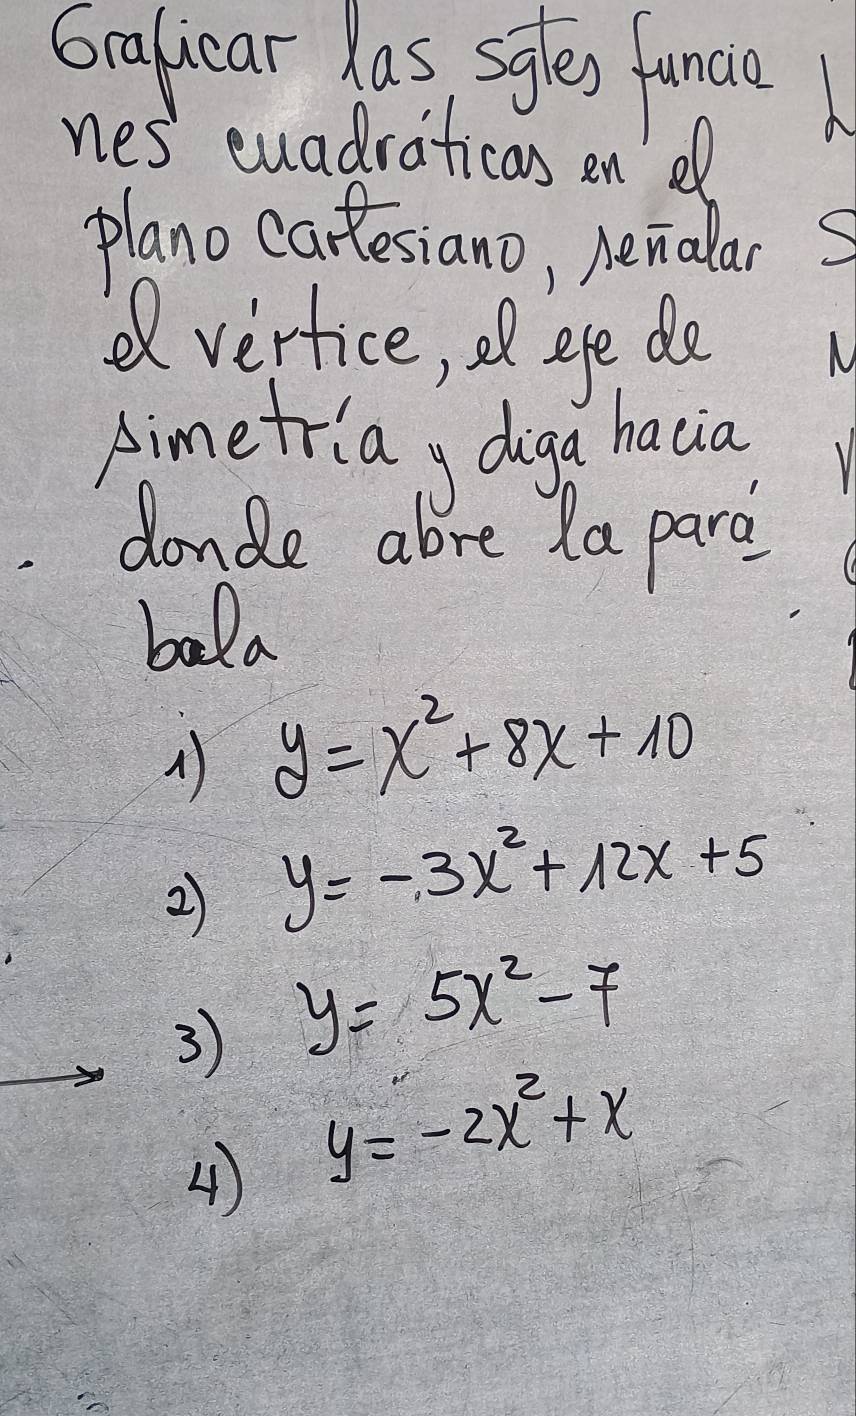 Graficar las sgtes funcio
nes cuadráticas en el
plano cartesiano, señalar
el vértice, el eje de
simetría y diga hacia
donde abre la pará
bola
1) y = x² + 8x + 10
2) y = -3x² + 12x + 5
3) y = 5x² - 7
4) y = -2x² + x